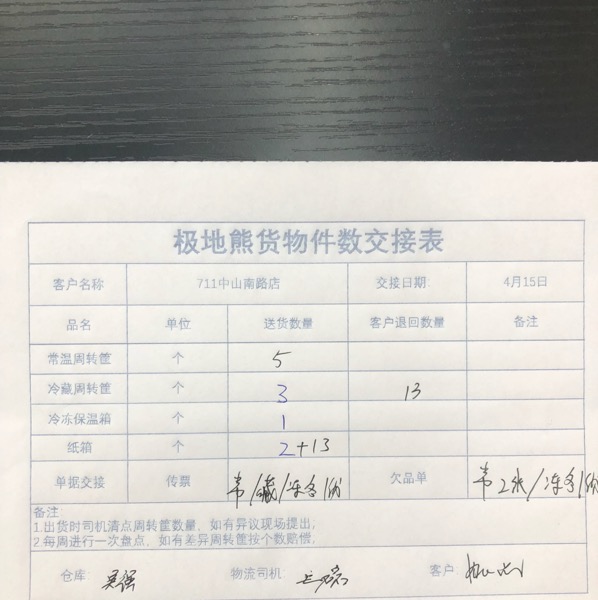 极地熊货物件数交接表
客户名称 711中山南路店 交接日期: 4月15日
品名 单位 送货数量 客户退回数量 备注
常温周转筐 个 5
冷藏周转筐 个 3 13
冷冻保温箱 个 1
纸箱 个 2+13
单据交接 传票 常/藏/冻各1份 欠品单 常2张/冻各1份
备注
1.出货时司机清点周转筐数量、如有异议现场提出;
2.每周进行一次盘点、如有差异周转筐按个数赔偿,
仓库: 吴强 物流司机: 客户: